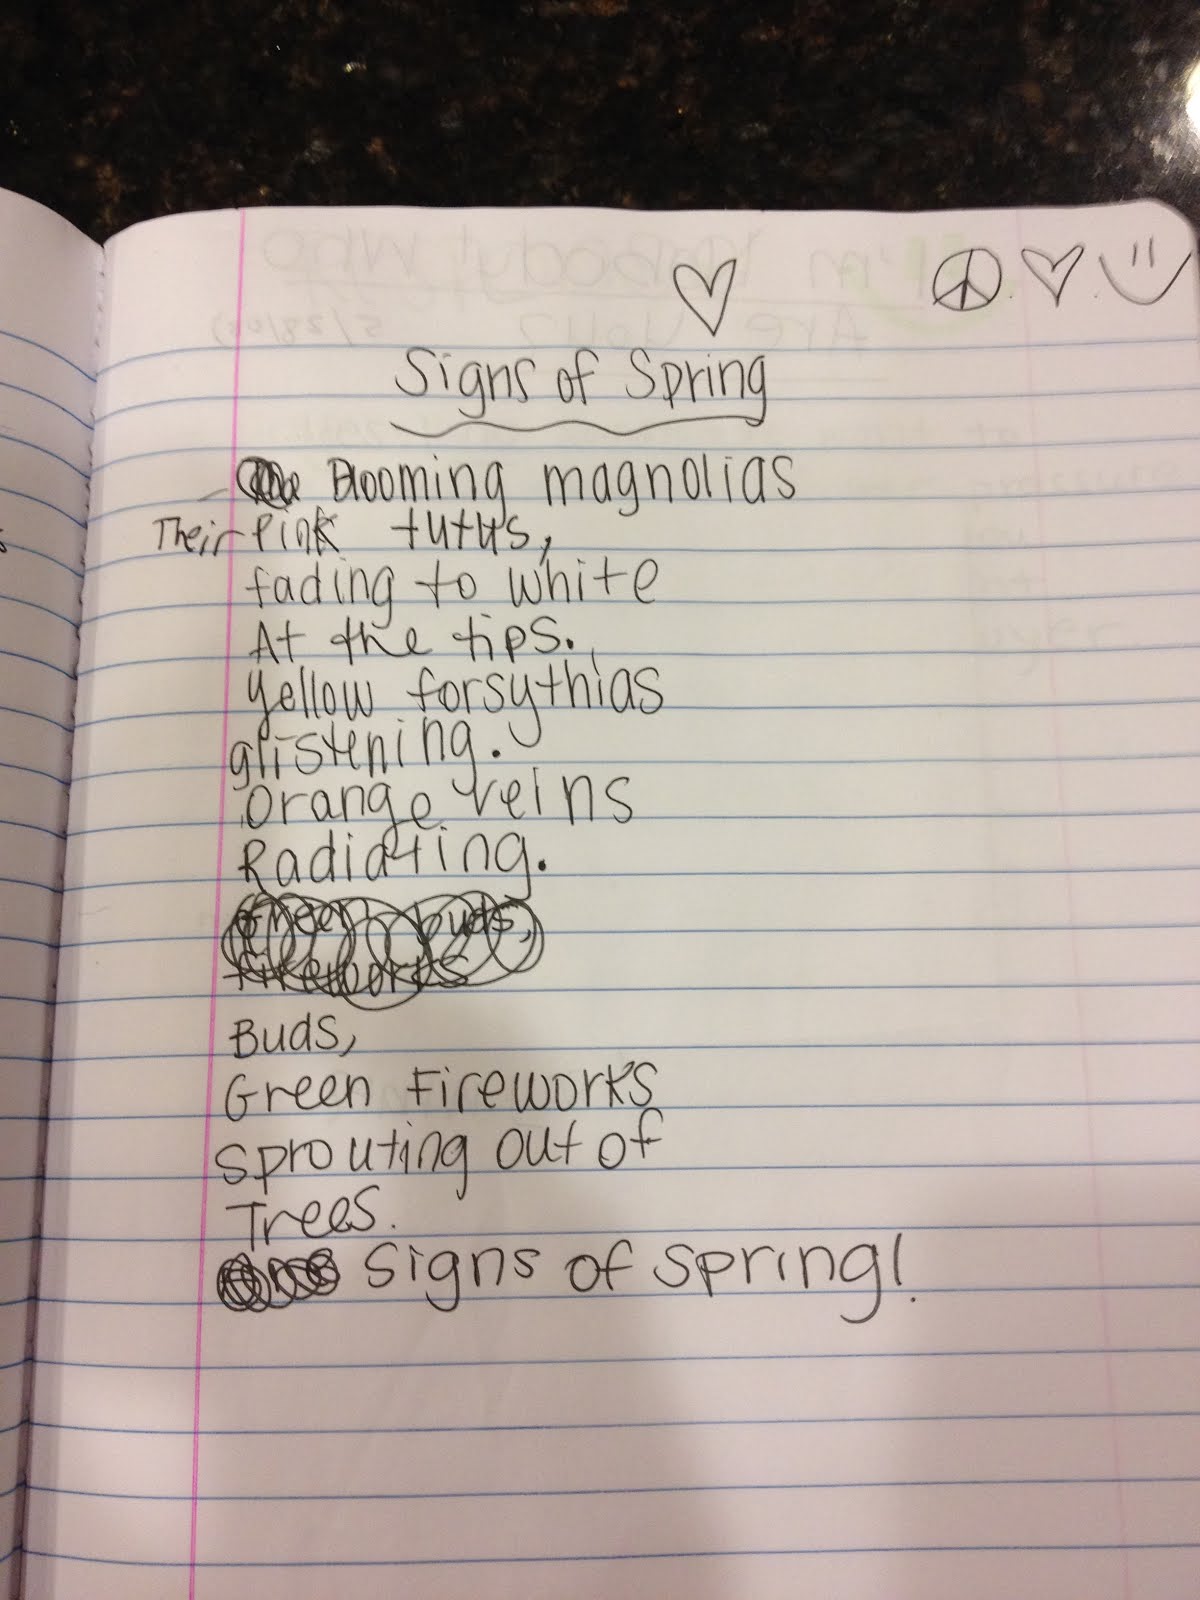 Signs of Spring
Blooming magnolias
Their Pink tutus,
fading to white
At the tips.
Yellow forsythias
glistening.
Orange veins
Radiating.
Green buds,
fireworks
Buds,
Green Fireworks
Sprouting out of
Trees.
Signs of Spring!